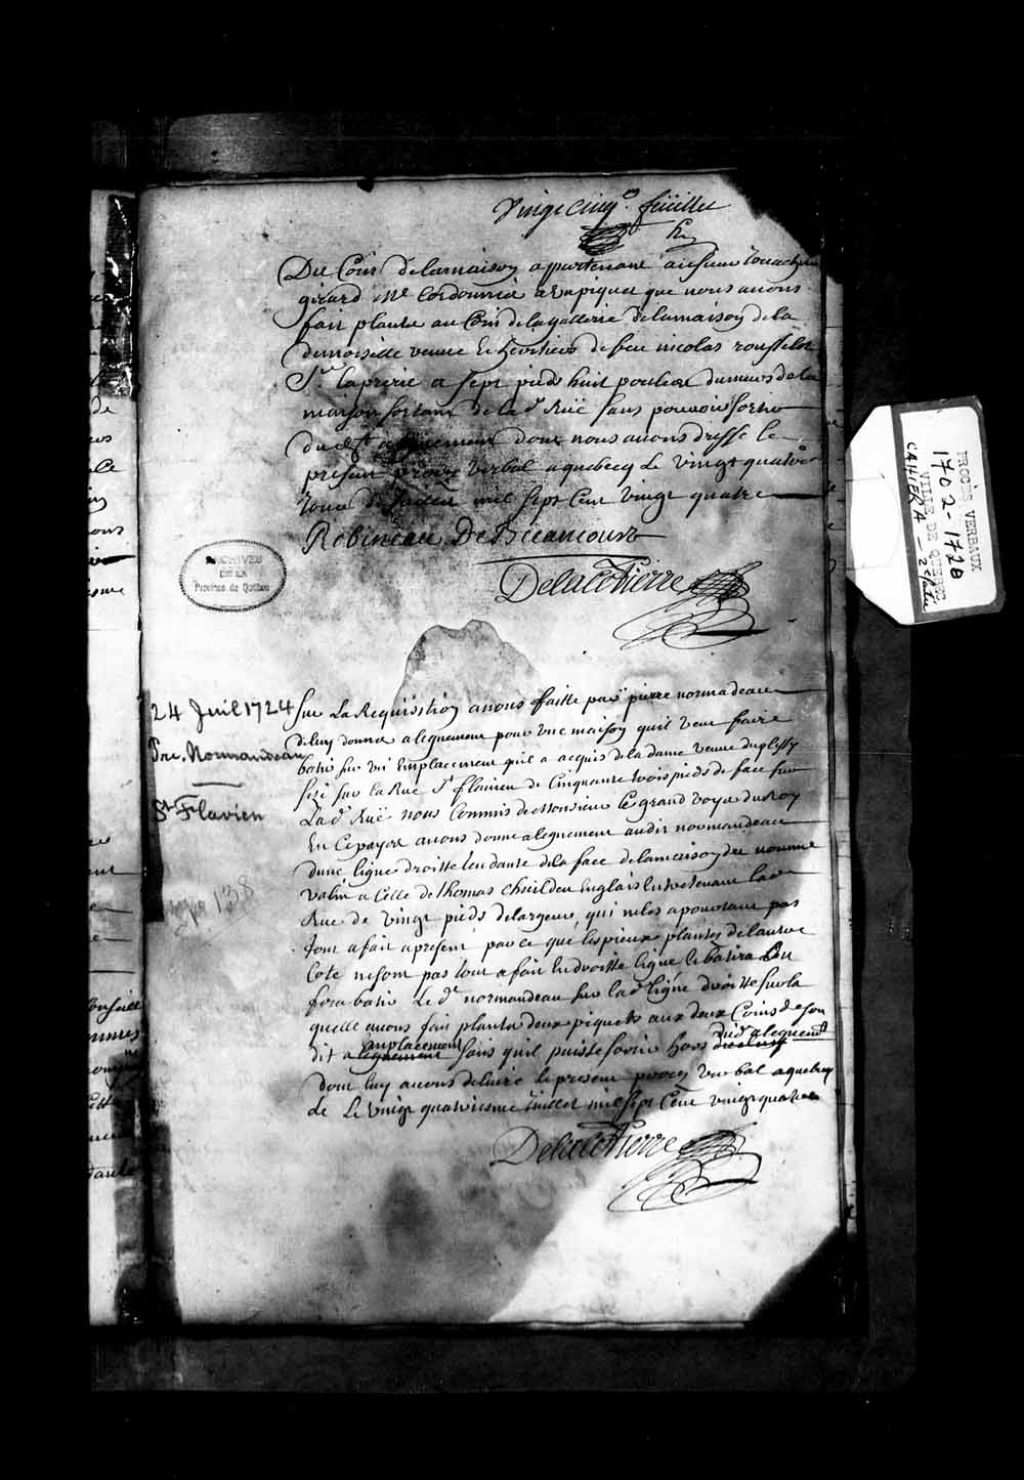 Vingt cinq.e feüillet
Du Coin delamaison appartenant ausieur Jouachim
girard Me Cordonnié a un piquet que nous auons
fait planté au Coin delagallerie delamaison dela
demoiselle veuue et heritiers defeu nicolas rousselot
Sr. laprerie a sept pieds huit pouces dumurs dela
maison sortant de la d.e Rüe sans pouvoir sortir
dud.t alignement dont nous auons dressé le
présent procès verbal a quebecq le vingt quatriè
Jour de Juillet mil sept Cent vingt quatre
Robineau De Bécancourt
Delacotierre
24 Juil 1724
Pre. Normandeau
St Flavien
138
Sur La Requisition anous faitte par pierre normandeau
deluy donner alegnement pour vne maison quil veut faire
batir sur vn Emplacement quil a acquis dela dame veuue duplessy
sizé sur la Rue St flauien de Cinquante trois pieds de face sur
La d.e Rüe nous Commis de Monsieur le grand voyer du Roy
En Cepays auons donné alegnement audit normandeau
dune ligne droitte tendante dela face delamaison du nommé
valin a Celle de thomas Cheilden Englais Entretenant lad.e
Rue de vingt pieds delargeur, qui nelas apourtant pas
tout afait apresent parce que lespieux plantes delautre
Coté nesont pas tout a fait endroitte ligne lebatira Ou
fera batir Le d.t normandeau sur lad.e ligne droitte surla
quelle auons fait planté deux piquets aux deux Coins deson
dit alegnement emplacement sans quil puisse sortir hors dud. alegnemt
dont luy auons deliuré lepresent procès verbal aquebecq
le Le vingt quatriesme Juillet mil sept Cent vingt quatre
Delacotierre
ARCHIVES
DE LA
Province de Québec
PROCÈS VERBAUX
1702-1728
VILLE DE QUEBEC
CAHIER A - 2e partie